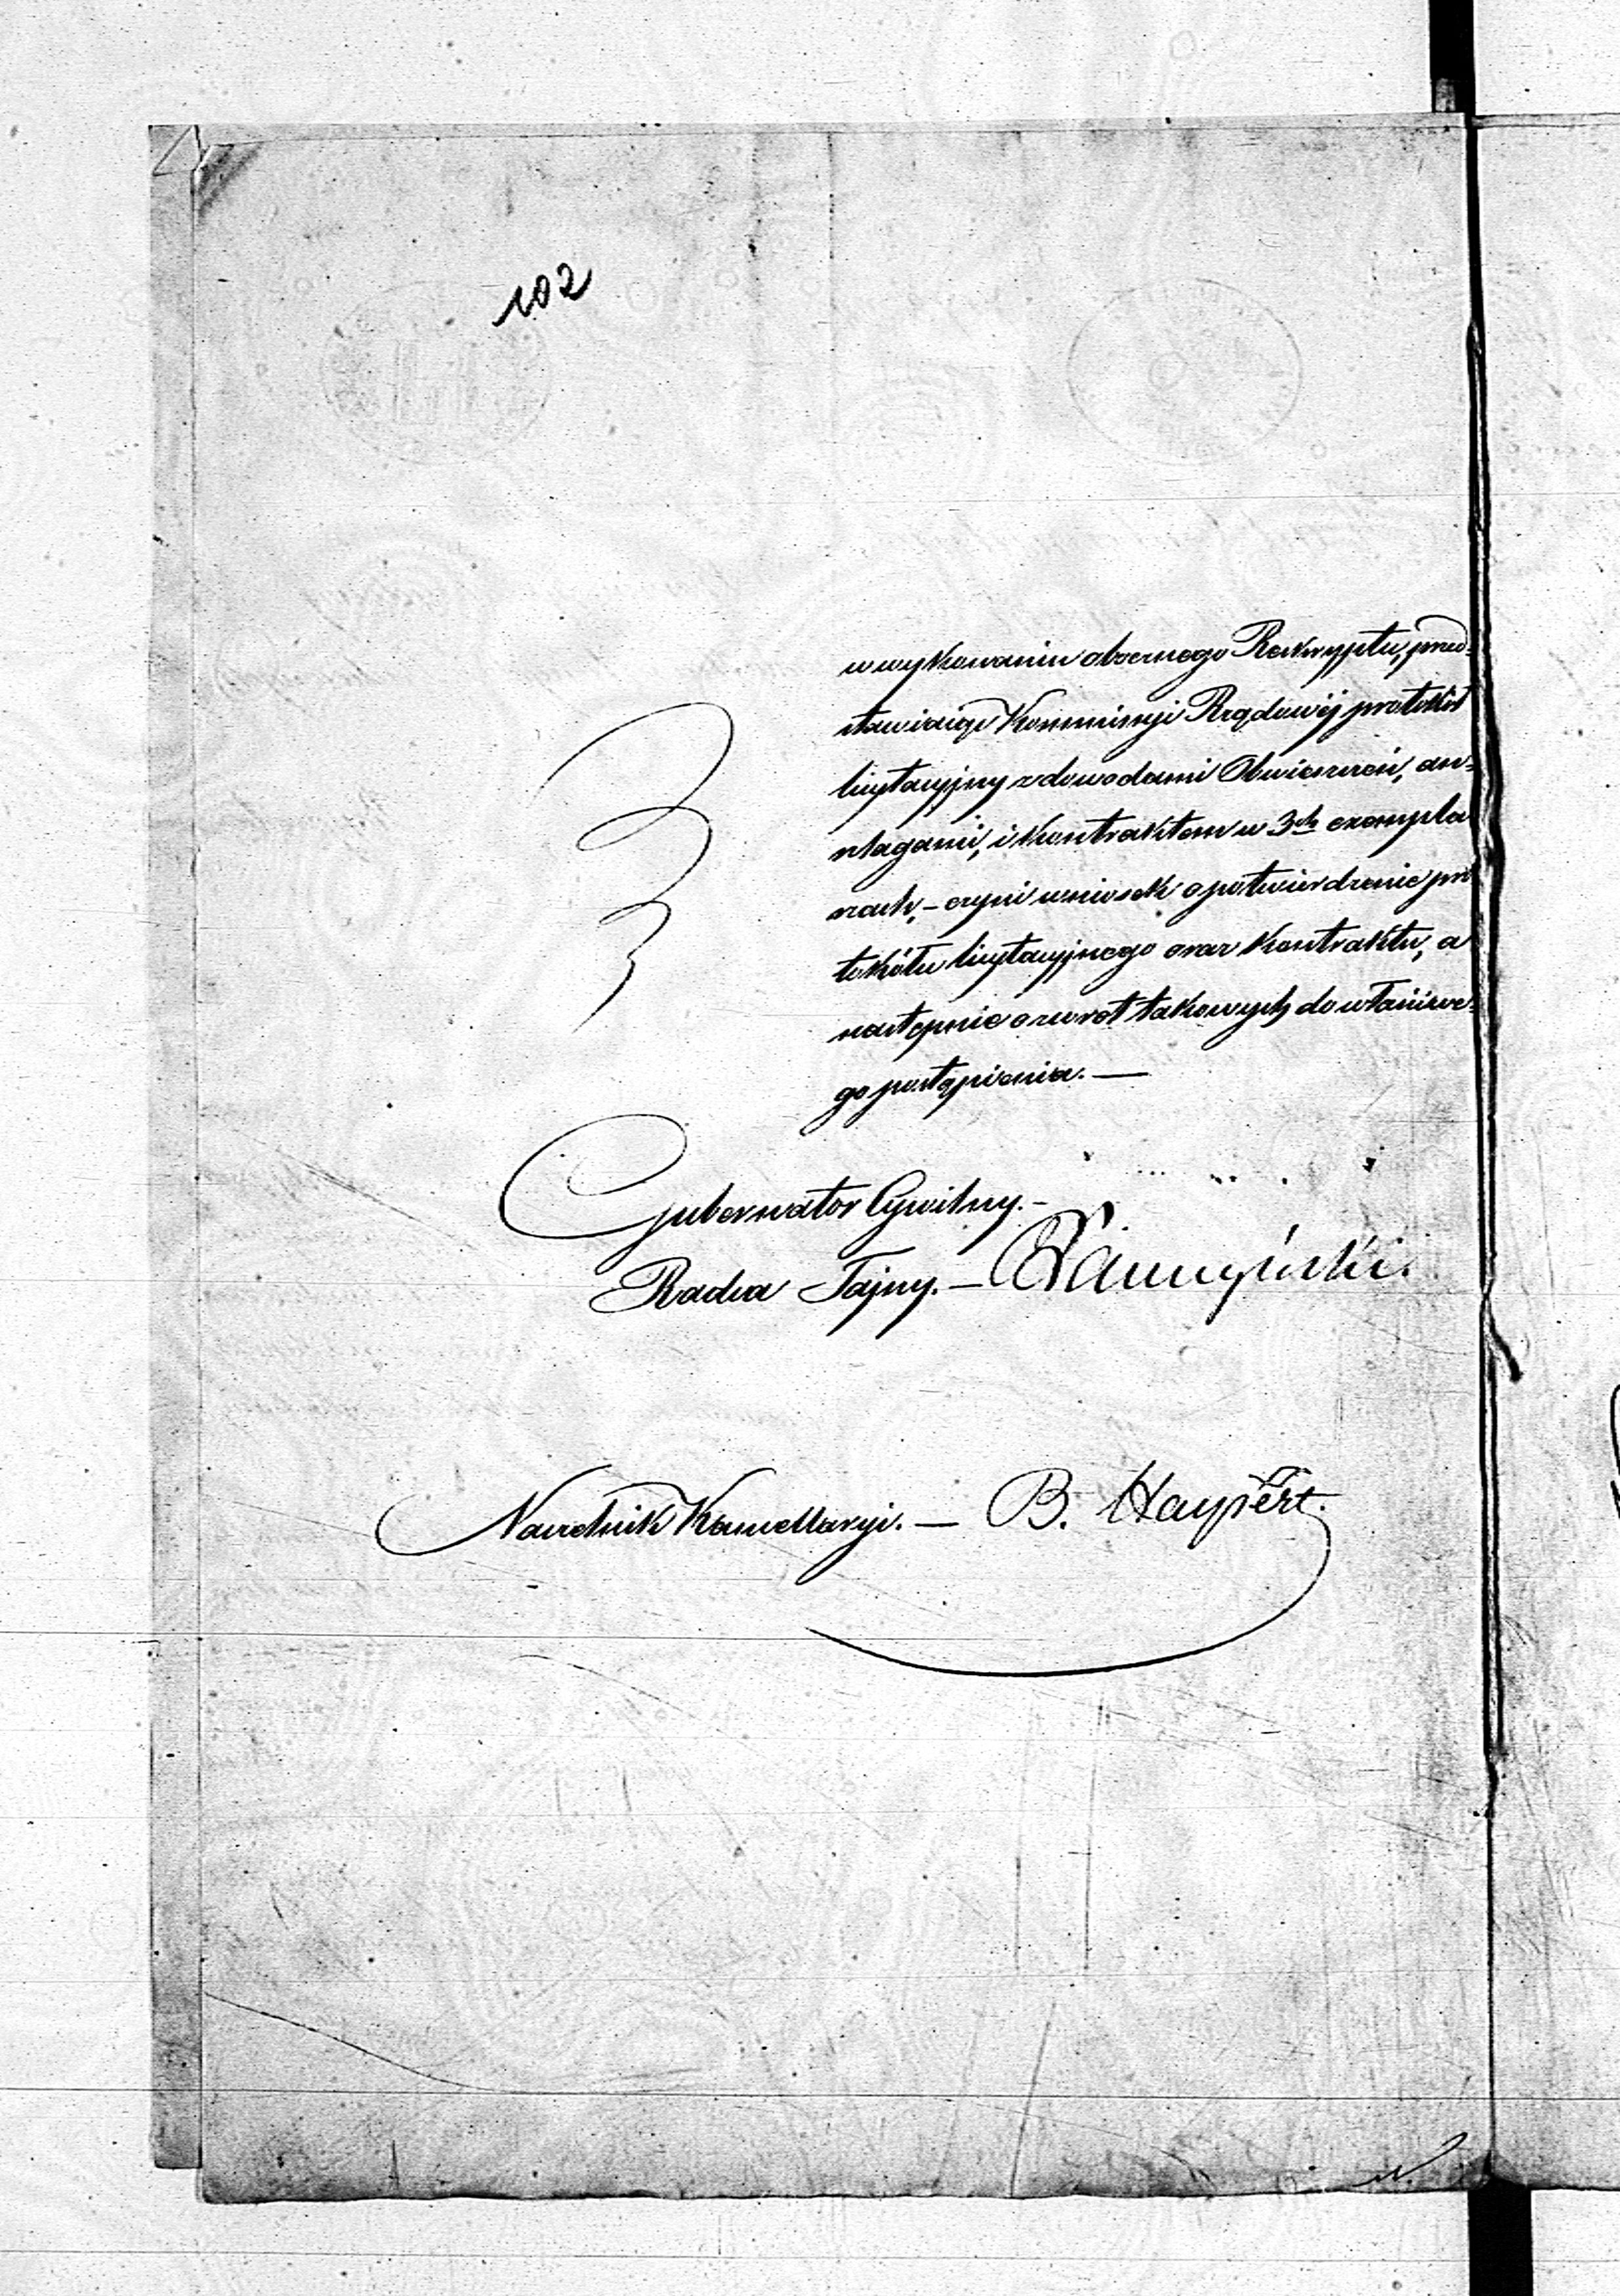 102
w wykonaniu obocznego Reskryptu, przed-
stawiając Kommissyi Rządowéj protokół
licytacyjny z dowodami Obwieszczeń, an-
szlagami, i kontraktem w 3ch exempla
rzach, – czyni wniosek o potwierdzenie pro
tokółu licytacyjnego oraz kontraktu, a
następnie o zwrot takowych do właściwe-
go postąpienia. —
Gubernator Cywilny. –
Radca Tajny. –
Naczelnik Kancellaryi. — B. Haypert.